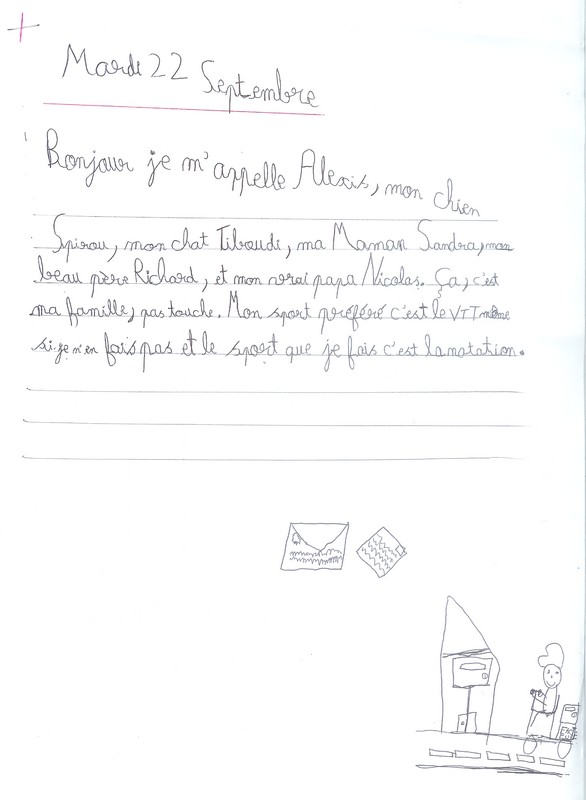 Mardi 22 Septembre
Bonjour je m'appelle Alexis, mon chien
Spirou, mon chat Tiboudi, ma Maman Sandra, mon
beau père Richard, et mon vrai papa Nicolas. Ça, c'est
ma famille, pas touche. Mon sport préféré c'est le VTT même
si je n'en fais pas et le sport que je fais c'est la natation.